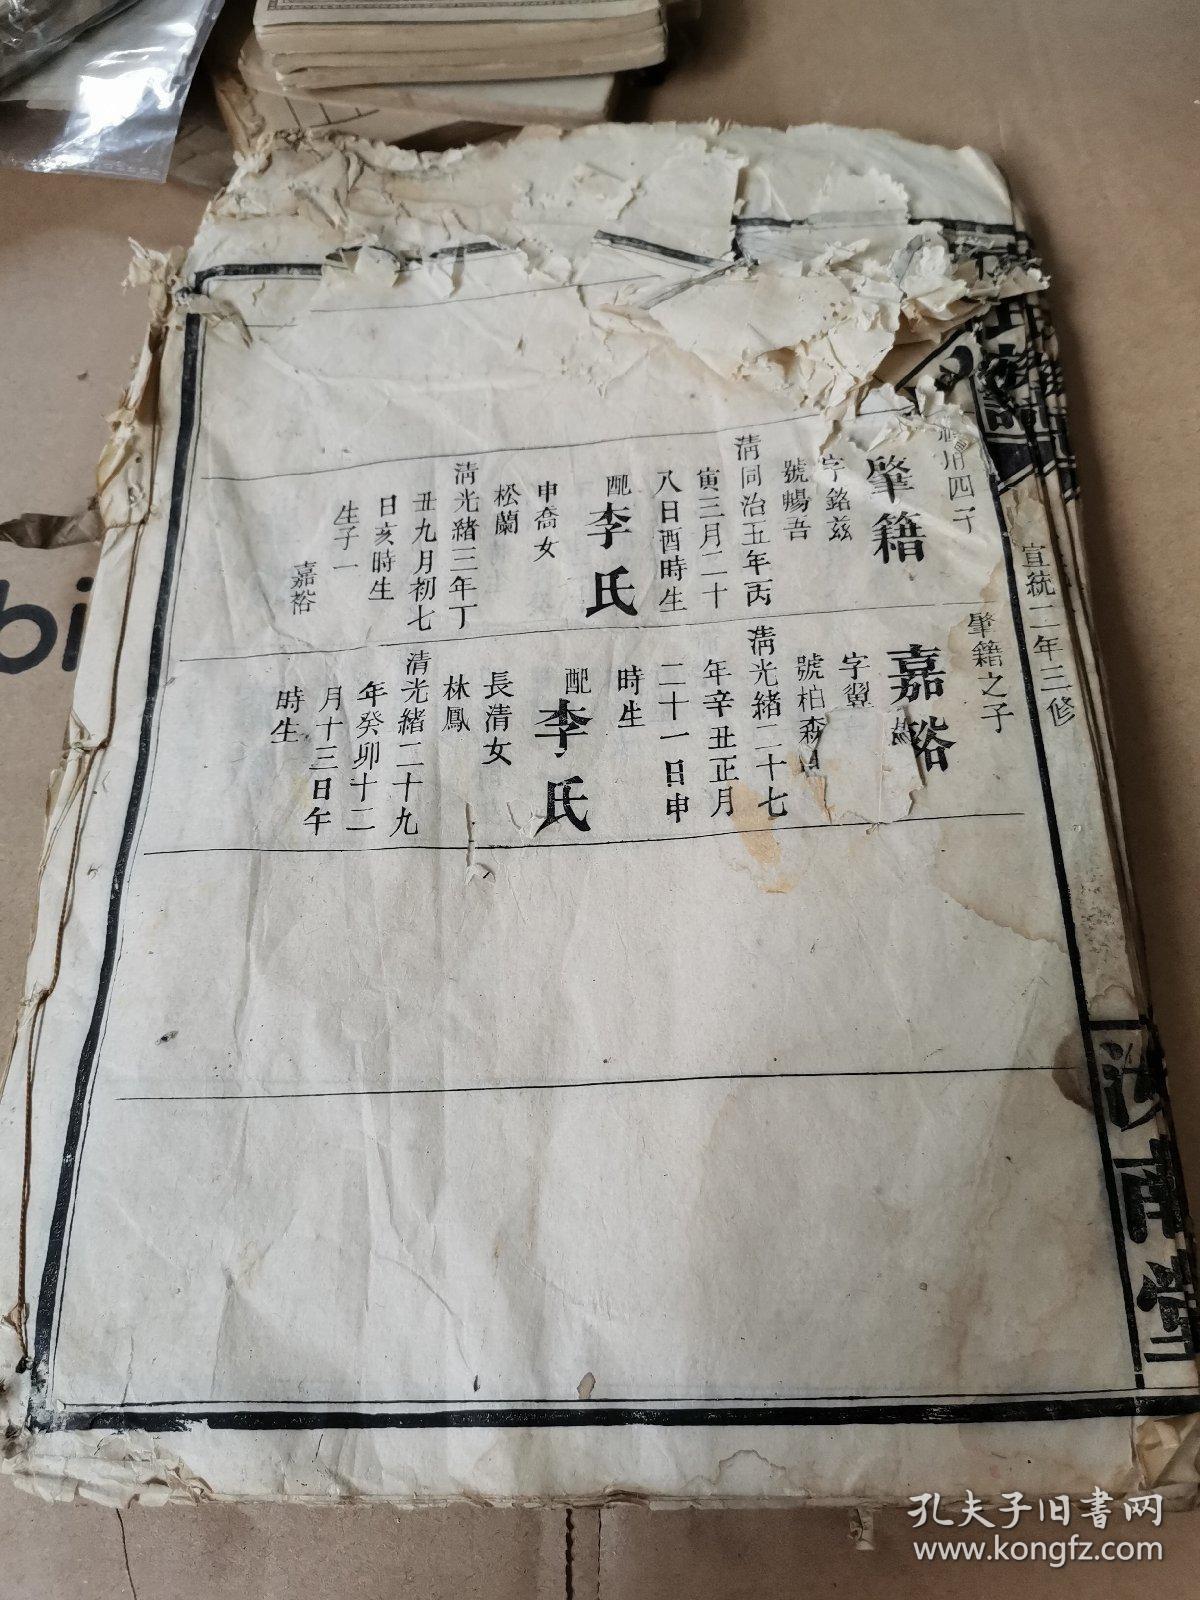 宣統二年三修
四子
肇籍
字銘茲
號暢吾
清同治五年丙
寅三月二十
八日酉時生
配李氏
申喬女
松蘭
清光緒三年丁
丑九月初七
日亥時生
生子一
嘉裕
肇籍之子
嘉裕
字翼
號柏森
清光緒二十七
年辛丑正月
二十一日申
時生
配李氏
長清女
林鳳
清光緒二十九
年癸卯十二
月十三日午
時生
bi
孔夫子旧书网
www.kongfz.com